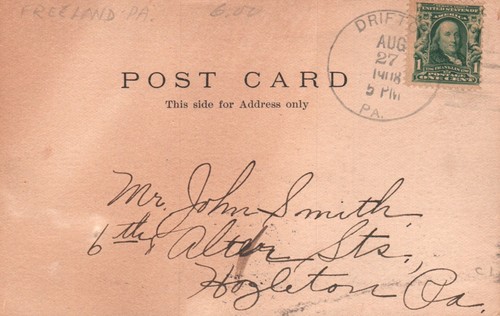 FREELAND PA. 6.00
DRIFT
AUG
27
1908
5 PM
PA.
UNITED STATES OF AMERICA
1 1
ONE CENT
POST CARD
This side for Address only
Mr. John Smith,
6th, Alter Sts,
Hazleton Pa.